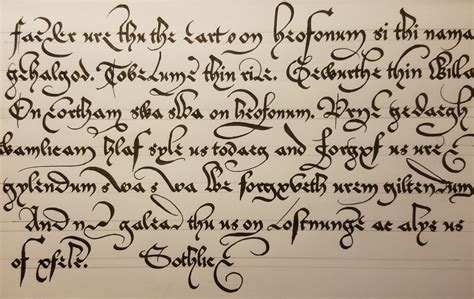 faeder ure thu the eart on heofonum si thi nama
gehalgod. Tobecume thin rice. Gewurthe thin Willa
On eortham swa swa on heofonum. Urne gedaegh
wamlicam hlaf syle us todaeg and forgyf us ure
gylendum swa swa We forgyveth urem giltendum
And ne galead thu us on Costnunge ac alys us
of yfele. Sothlice